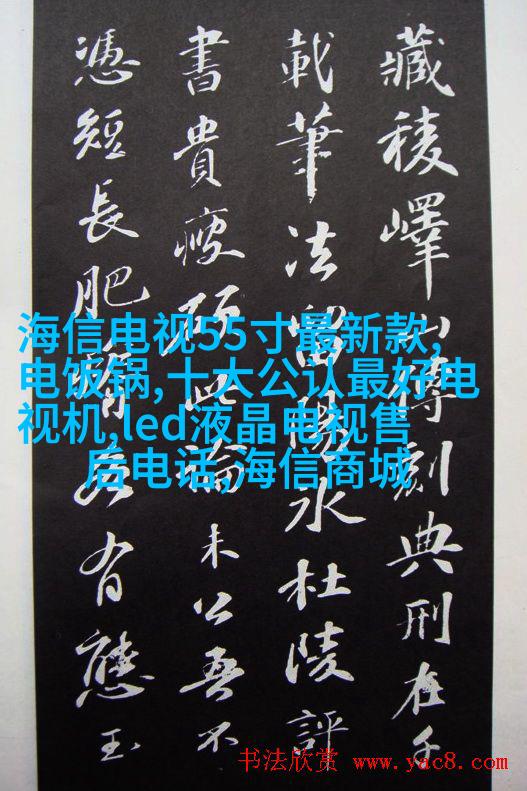 藏稜嶧山傳刻典刑在千
載筆法留陽氷杜陵評
書貴瘦硬此論未公吾不
憑短長肥瘠各有態玉
海信电视55寸最新款,
电饭锅,十大公认最好电
视机,led液晶电视售
后电话,海信商城
书法欣赏 www.yac8.com